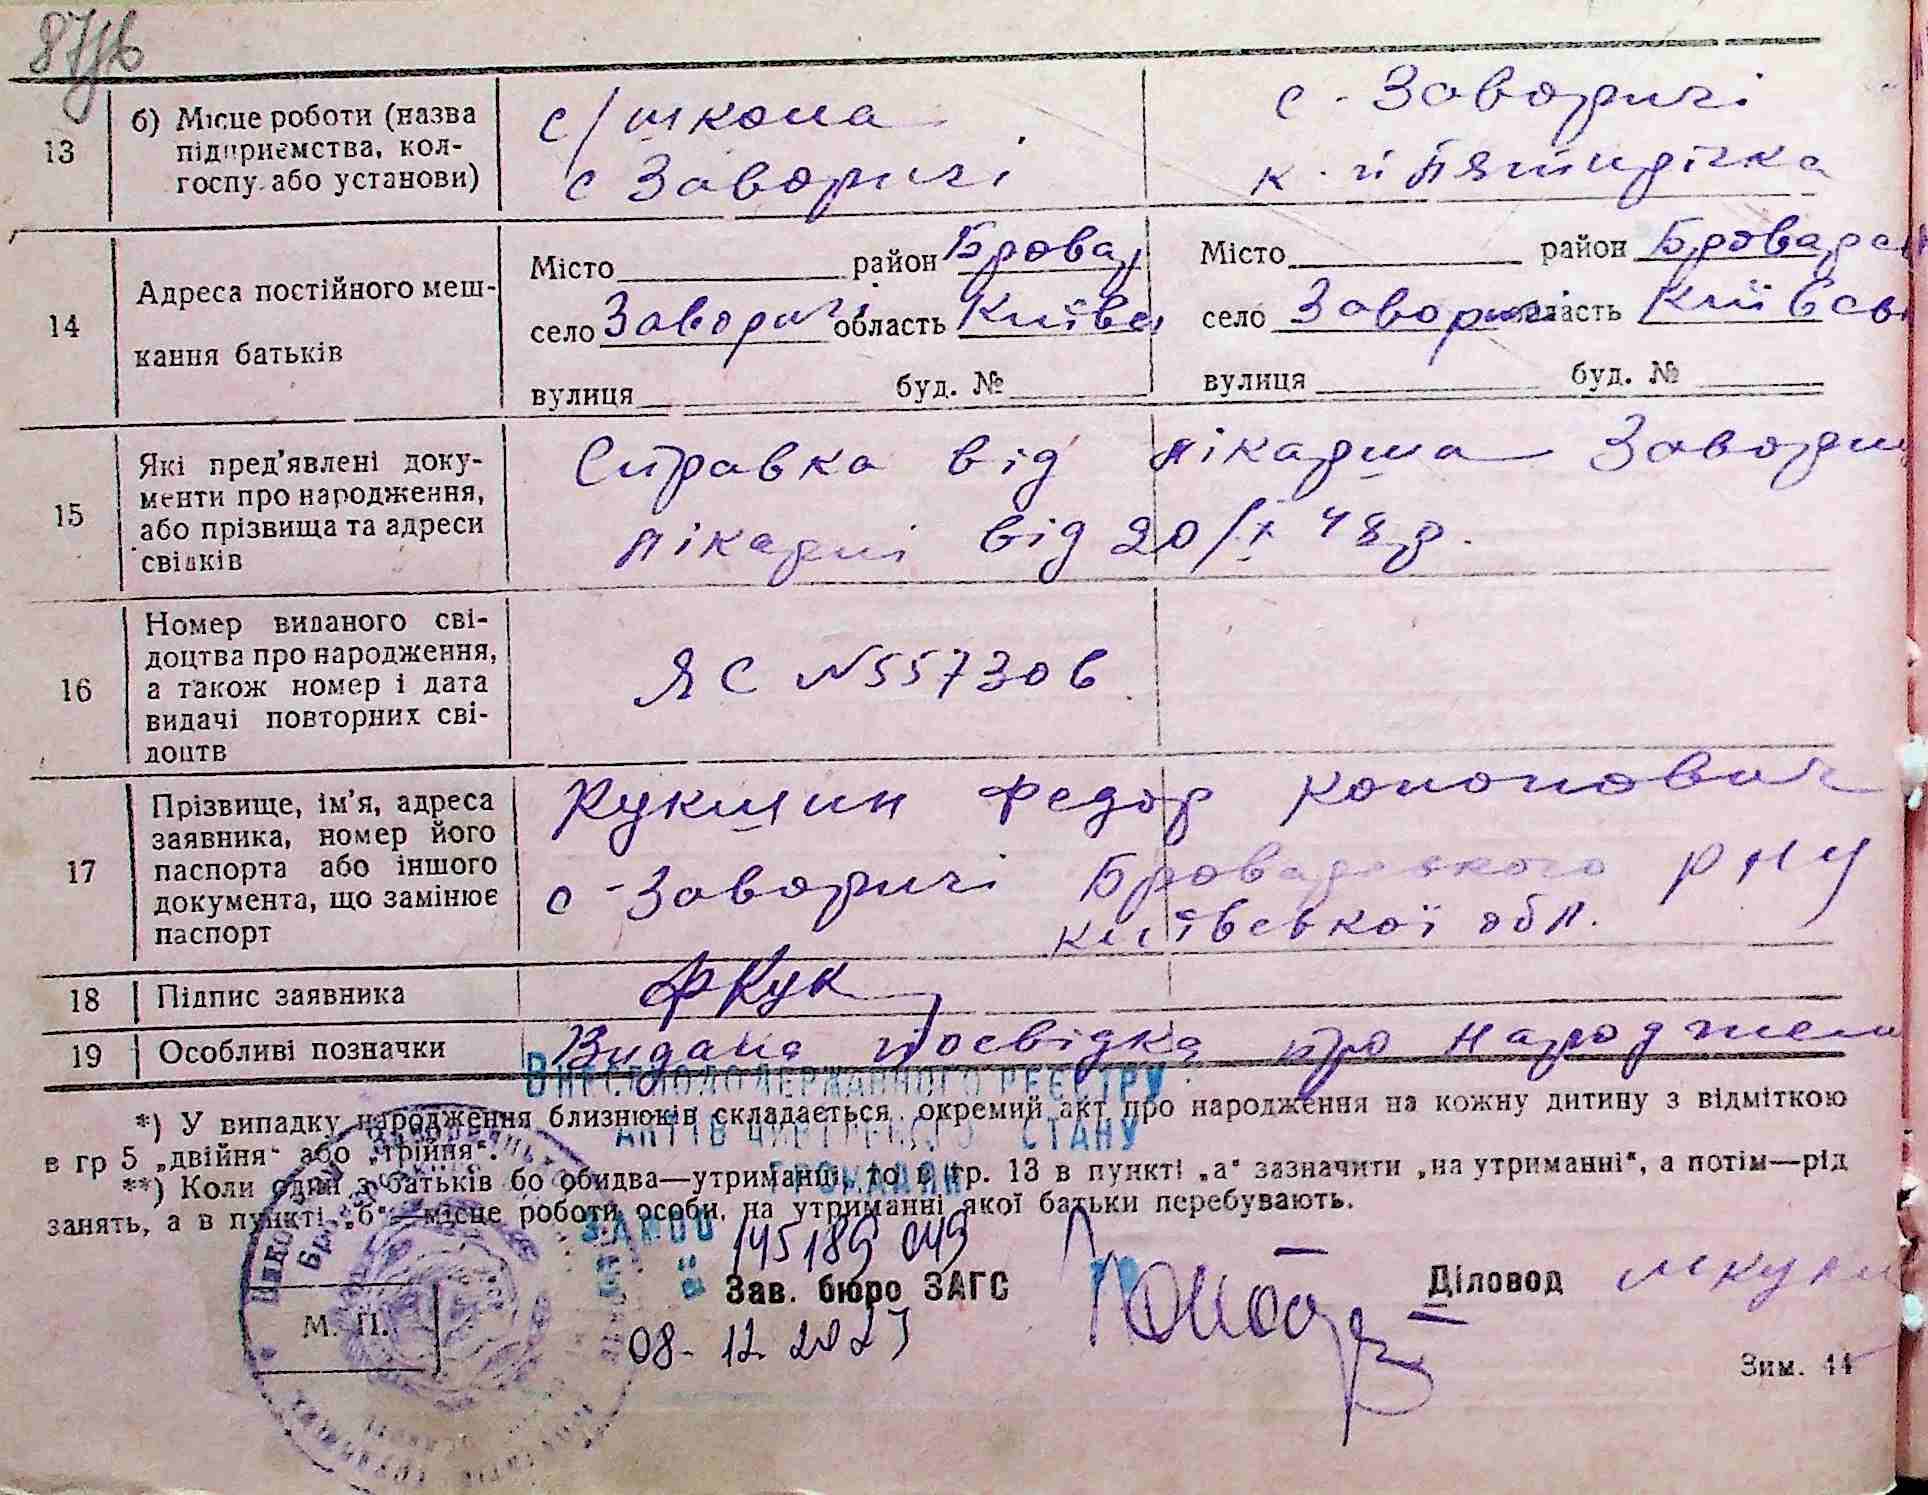 13
б) Місце роботи (назва
підприємства, кол-
госпу або установи)
с/школа
с Заворичі
с - Заворичі
к. ІІ П'ятирічка
14
Адреса постійного меш-
кання батьків
Місто район Бровар
село Заворичі область Київсь
вулиця буд. №
Місто район Броварсь
село Заворичі область Київсь
вулиця буд. №
15
Які пред'явлені доку-
менти про народження,
або прізвища та адреси
свідків
Справка від лікарша Завори
лікарні від 20/X 48 р.
16
Номер виданого сві-
доцтва про народження,
а також номер і дата
видачі повторних сві-
доцтв
ЯС №557306
17
Прізвище, ім'я, адреса
заявника, номер його
паспорта або іншого
документа, що замінює
паспорт
Федор Кононович
с - Заворичі Броварського р-ну
Київської обл.
18
Підпис заявника
ФКук
19
Особливі позначки
Видана посвідка про народжен
Внесено до державного реєстру
актів цивільного стану
громадян
*) У випадку народження близнюків складається окремий акт про народження на кожну дитину з відміткою
в гр 5 „двійня“ або „трійня“.
**) Коли один з батьків бо обидва—утриманці, то в гр. 13 в пункті „а“ зазначити „на утриманні“, а потім—рід
занять, а в пункті „б“—місце роботи особи, на утриманні якої батьки перебувають.
М. П.
Зав. бюро ЗАГС
Діловод
08.12.2023
Зим. 44